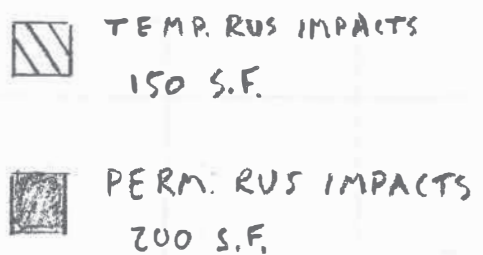 TEMP. RUS IMPACTS
150 S.F.
PERM. RUS IMPACTS
200 S.F.